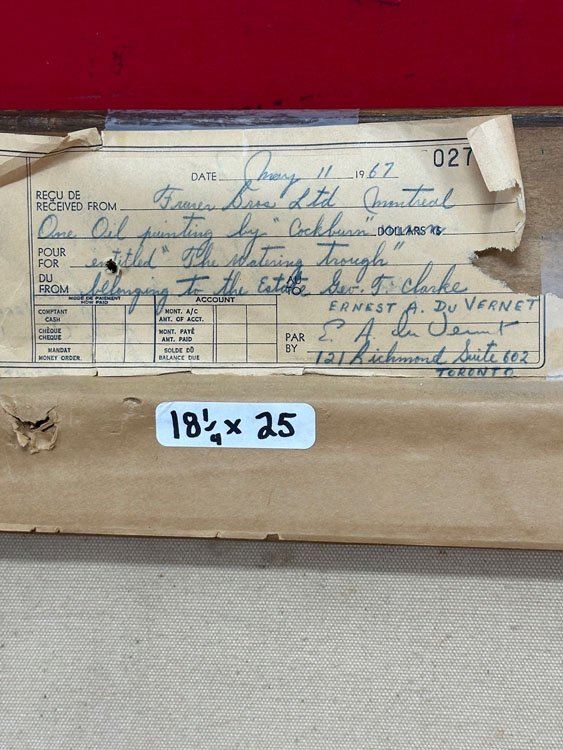 027
DATE May 11 1967
REÇU DE
RECEIVED FROM Fraser Bros Ltd Montreal
One Oil painting by "Cockburn" DOLLARS
POUR
FOR entitled "The Watering trough"
DU
FROM belonging to the Estate Geo. T. Clarke
MODE DE PAIEMENT
HOW PAID
ACCOUNT
COMPTANT
CASH
CHÈQUE
CHEQUE
MANDAT
MONEY ORDER
MONT. A/C
AMT. OF ACCT.
MONT. PAYÉ
AMT. PAID
SOLDE DÛ
BALANCE DUE
ERNEST A. DU VERNET
PAR
BY E. A. du Vernet
121 Richmond Suite 602
TORONTO
18 1/4 x 25